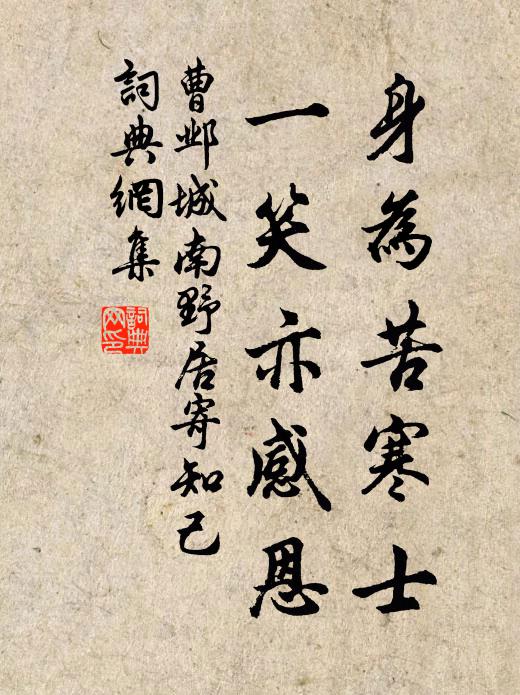 身為苦寒士
一笑亦感恩
曹邺城南野居寄知己
詞典網集
詞典网印